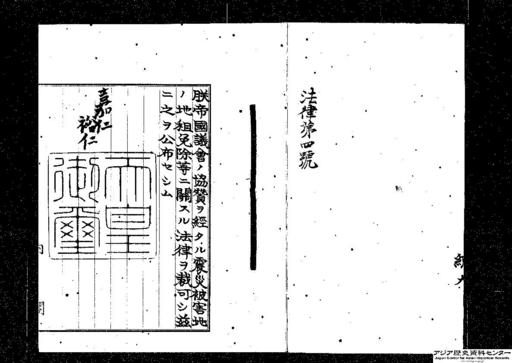 法律第四號
朕帝國議會ノ協贊ヲ經タル震災被害地
ノ地租免除等ニ關スル法律ヲ裁可シ茲
ニ之ヲ公布セシム
嘉仁
裕仁
天皇御璽
アジア歴史資料センター
Japan Center for Asian Historical Records